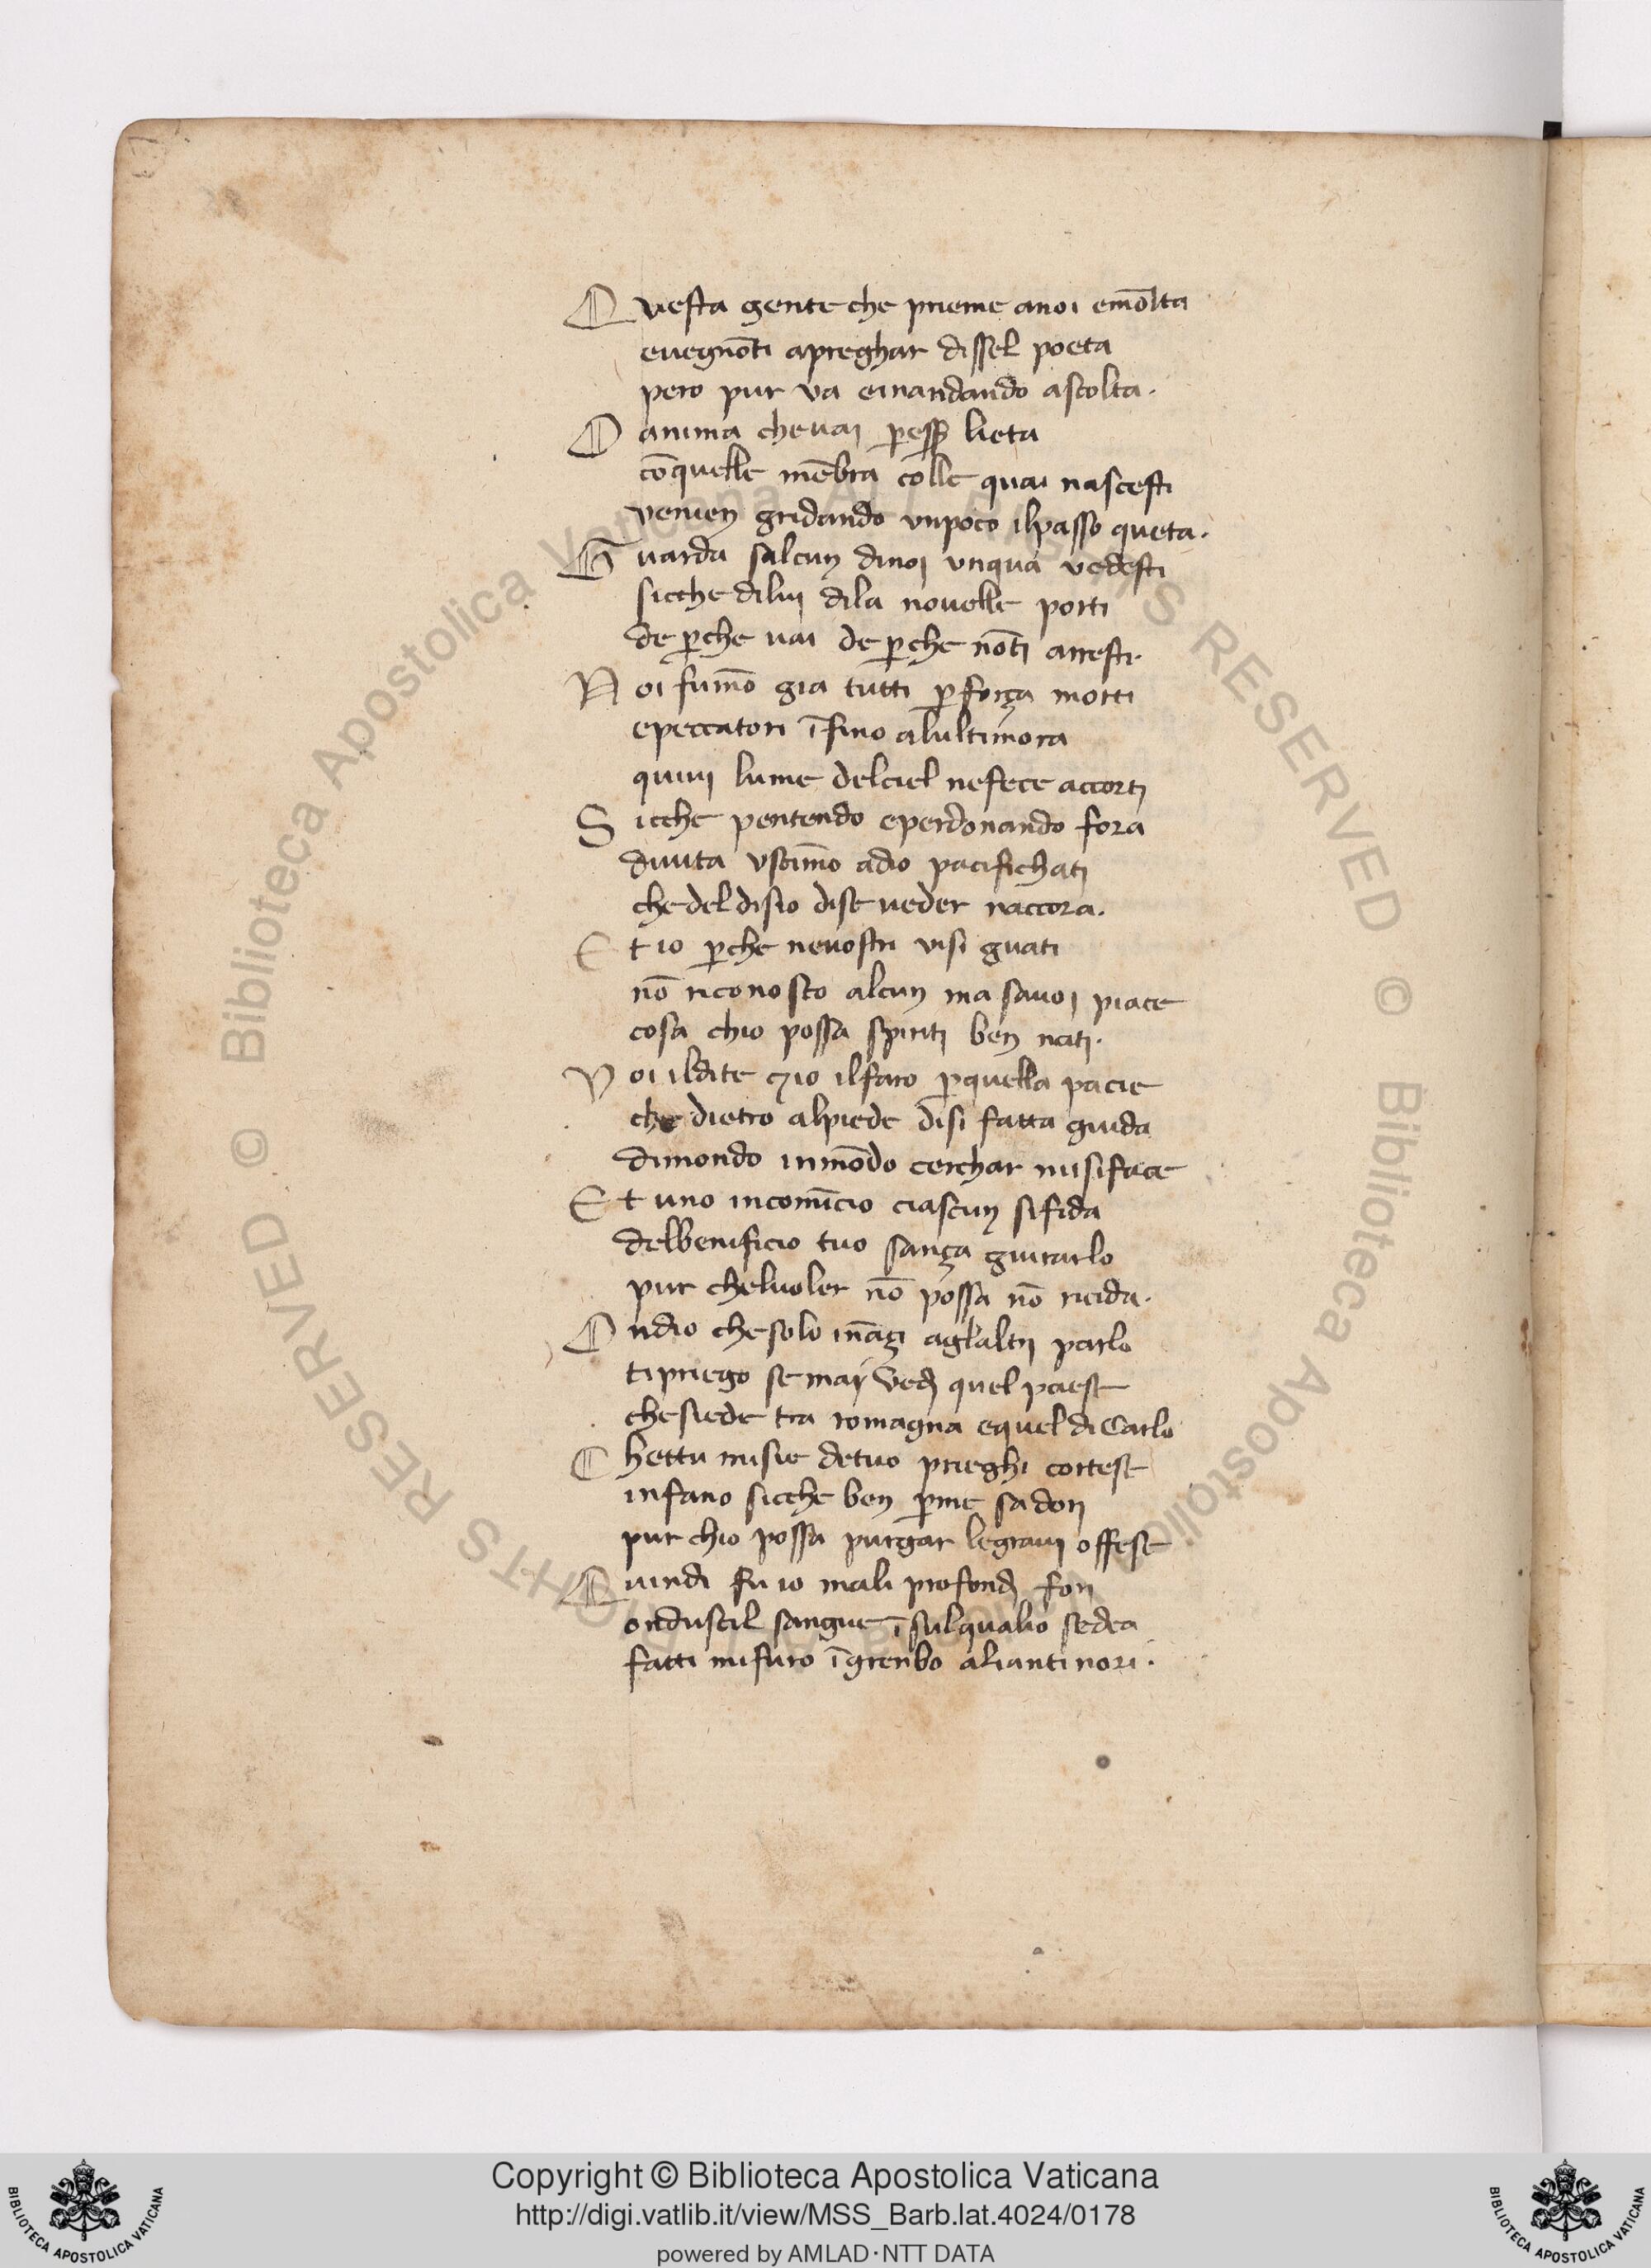 Questa gente che prieme anoi emōlta
euegnōti apreghar dissel poeta
pero pur va einandando ascolta.
O anima cheuai p̄ess̄ lieta
cōquelle mēbra colle quai nascesti
venien gridando vnpoco ilpasso queta.
Guarda salcun dinoi vnqua vedesti
sicche dilui dila nouelle porti
de p̄che uai de p̄che nōti arresti.
Noi fumō gia tutti p̄ força morti
epeccatori īfino alultimora
quiui lume delciel nefece accorti
Sicche pentendo eperdonando fora
diuita vscimō adio pacifichati
chedel disio dise ueder naccora.
Et io p̄che neuostri uisi guati
nō riconosco alcun ma sauoi piace
cosa chio possa spiriti ben nati.
Voi ildite 7io ilfaro p̄quella pacie
che dietro alpiede disi fatta guida
dimondo inmōdo cerchar misiface
Et uno incomīcio ciascun sifida
delbenificio tuo sança giurarlo
pur cheluoler nō possa nō ricida.
Ondio chesolo ināçi aglaltri parlo
tipriego semai vedi quel paese
chesiede tra romagna equel di Carlo
Chettu misie detuo prieghi cortese
infano sicche ben p̄me sadori
pur chio possa purgar legraui offese
Quindi fu io mali profondi fori
onduscil sangue īsulqualio sedea
fatti mifuro īgrenbo aliantinori.
Copyright © Biblioteca Apostolica Vaticana
http://digi.vatlib.it/view/MSS_Barb.lat.4024/0178
powered by AMLAD·NTT DATA
BIBLIOTECA APOSTOLICA VATICANA
BIBLIOTECA APOSTOLICA VATICANA